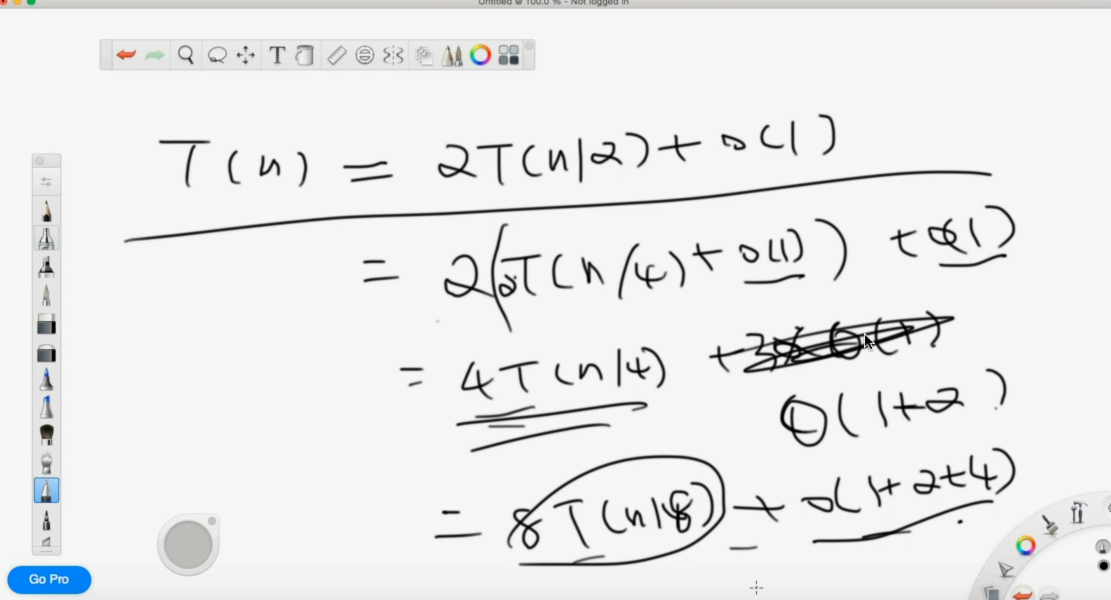 Untitled @ 100.0 % - Not logged in
T
T(n) = 2T(n/2) + O(1)
= 2(2T(n/4) + O(1)) + O(1)
= 4T(n/4) +
O(1+2)
= 8T(n/8) + O(1+2+4)
Go Pro